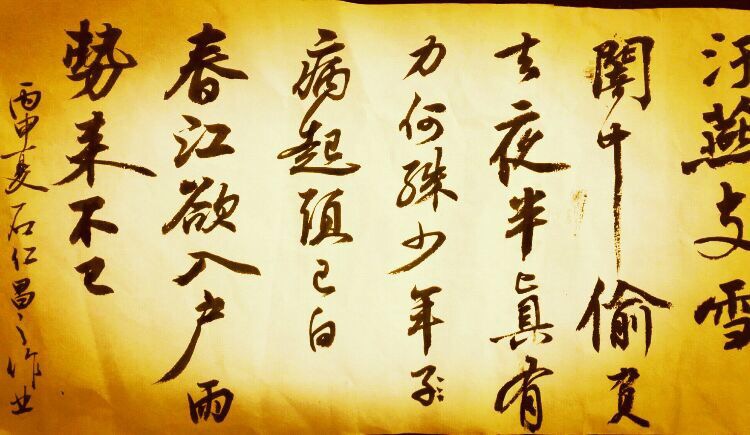 汙燕支雪
闇中偷負
去夜半眞有
力何殊少年子
病起須已白
春江欲入戶雨
勢来不已
丙申夏石仁昌之作业